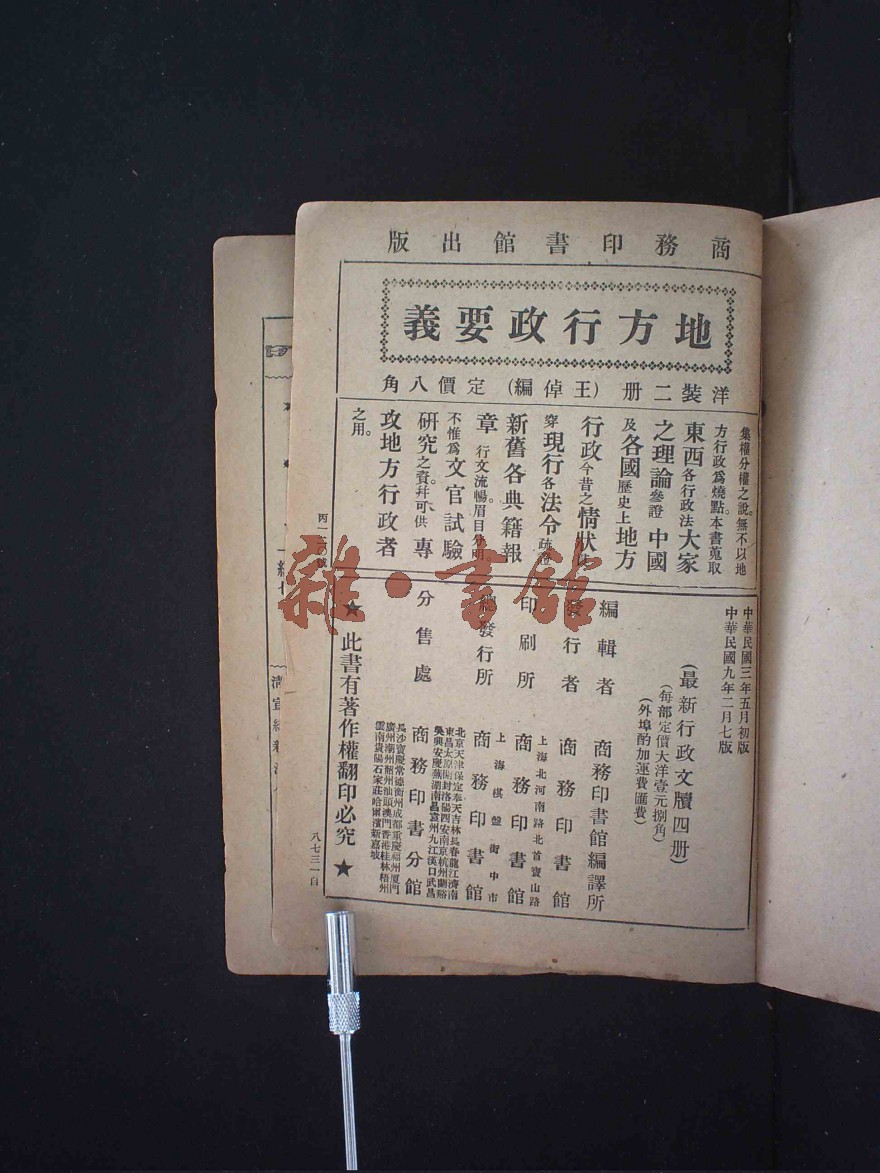 商務印書館出版
地方行政要義
洋裝二册(王倬編)定價八角
集權分權之說。無不以地
方行政爲燒點本書蒐取
東西各行政法大家
之理論參證中國
及各國歷史上地方
行政今昔之情狀
穿現行各法令疏證
新舊各典籍報
章行文流暢。眉目分明
不惟爲文官試驗
研究之資。幷可供專
攻地方行政者
之用。
中華民國三年五月初版
中華民國九年二月七版
(最新行政文牘四册)
(每部定價大洋壹元捌角)
(外埠酌加運費匯費)
編輯者 商務印書館編譯所
發行者 商務印書館
上海北河南路北首寶山路
印刷所 商務印書館
上海棋盤街中市
總發行所 商務印書館
北京天津保定奉天吉林長春龍江濟南
東昌太原開封洛陽西安南京杭州蘭谿
吳興安慶蕪湖南昌九江漢口武昌
分售處 商務印書分館
長沙寶慶常德衡州成都重慶福州厦門
廣州潮州汕頭澳門香港桂林梧州
雲南貴陽石家莊哈爾濱新嘉坡
★此書有著作權翻印必究★
八七三一自
雜·書館